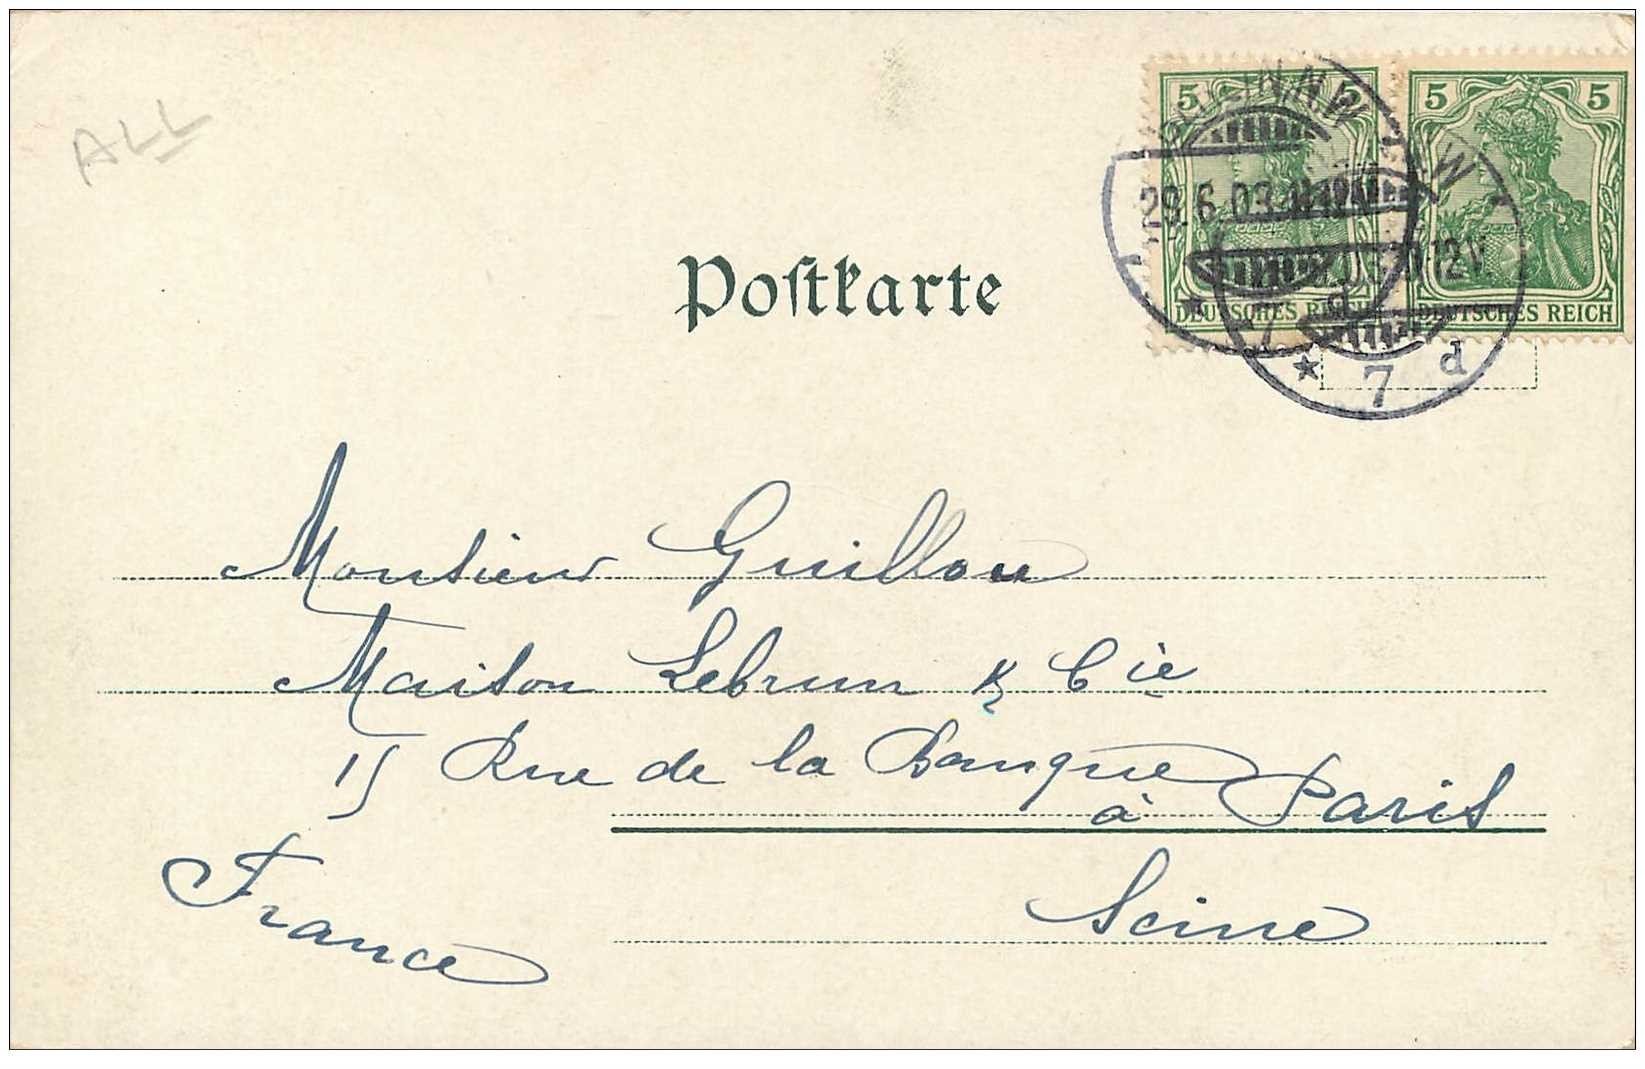 ALL
5 5 5 5
BERLIN N.W.
N.W.
29.6.03.
12V.
DEUTSCHES REICH DEUTSCHES REICH
* 7 d
* 7 d
Poſtkarte
Monsieur Guillou
Maison Lebrun & Cie
15 Rue de la Banque
à Paris
Seine
France